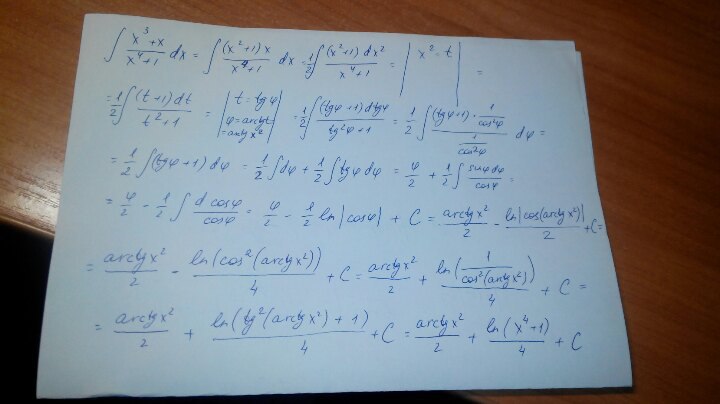 ∫ (x³+x)/(x⁴+1) dx = ∫ ((x²+1)x)/(x⁴+1) dx = 1/2 ∫ ((x²+1)dx²)/(x⁴+1) = | x² = t | =
= 1/2 ∫ ((t+1)dt)/(t²+1) = | t = tgφ φ = arctgt = arctg x² | = 1/2 ∫ ((tgφ+1)dtgφ)/(tg²φ+1) = 1/2 ∫ ((tgφ+1)·1/cos²φ)/(1/cos²φ) dφ =
= 1/2 ∫(tgφ+1)dφ = 1/2 ∫dφ + 1/2 ∫tgφ dφ = φ/2 + 1/2 ∫ (sinφdφ)/cosφ =
= φ/2 - 1/2 ∫ (d cosφ)/cosφ = φ/2 - 1/2 ln|cosφ| + C = (arctg x²)/2 - (ln|cos(arctg x²)|)/2 + C =
= (arctg x²)/2 - (ln(cos²(arctg x²)))/4 + C = (arctg x²)/2 + (ln(1/(cos²(arctg x²))))/4 + C =
= (arctg x²)/2 + (ln(tg²(arctg x²) + 1))/4 + C = (arctg x²)/2 + (ln(x⁴+1))/4 + C